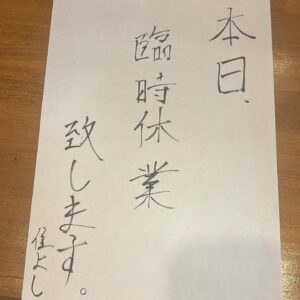 本日、
臨時休業
致します。
佳よし